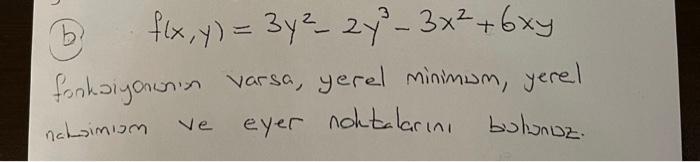 b) f(x,y) = 3y² - 2y³ - 3x² + 6xy
fonksiyonunun varsa, yerel minimum, yerel
maksimum ve eyer noktalarını bulunuz.